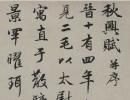 秋興賦并序
晉十有四年
見二毛以太尉
寓直于散騎
景罕曜珥